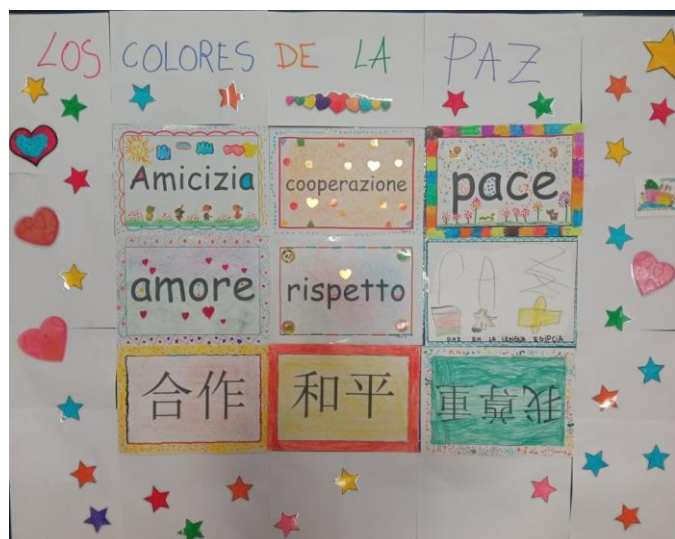 LOS COLORES DE LA PAZ
Amicizia
cooperazione
pace
amore
rispetto
PAZ
PAZ EN LA LENGUA EGIPCIA
合作
和平
我尊重